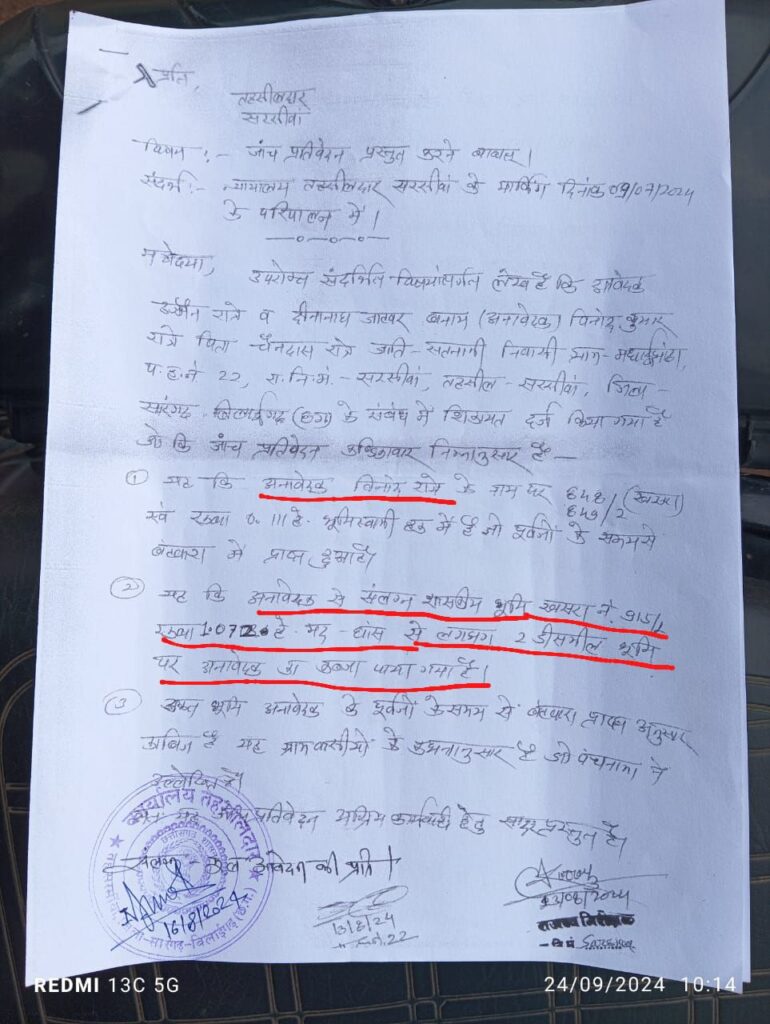 प्रति,
तहसीलदार
सरसीवां
विषय :- जांच प्रतिवेदन प्रस्तुत करने बाबत्।
संदर्भ :- न्यायालय तहसीलदार सरसीवां के मार्किंग दिनांक 09/07/2024
के परिपालन में।
—०—०—०—
महोदया,
उपरोक्त संदर्भित विषयांतर्गत लेख है कि आवेदक
रात्रे व दीनानाथ जाटवर बनाम (अनावेदक) विनोद कुमार
रात्रे पिता चैनदास रात्रे जाति-सतनामी निवासी ग्राम-
प.ह.नं 22, रा.नि.मं.-सरसीवां, तहसील-सरसीवां, जिला-
सारंगढ़-बिलाईगढ़ (छग) के संबंध में शिकायत दर्ज किया गया है
जो कि जांच प्रतिवेदन कंडिकावार निम्नानुसार है-
① यह कि अनावेदक विनोद रात्रे के नाम पर 648/ (खसरा)
649/2
एवं रकबा 0.111 हे. भूमिस्वामी हक में है जो पूर्वजों के समय से
बंटवारा में प्राप्त हुआ है।
② यह कि अनावेदक से संलग्न शासकीय भूमि खसरा नं. 915/1
रकबा 1.072 हे. मद-घांस से लगभग 2 डीसमील भूमि
पर अनावेदक का कब्जा पाया गया है।
③ उक्त भूमि अनावेदक के पूर्वजों के समय से बंटवारा प्राप्त अनुसार
काबिज है यह ग्रामवासीयों के कथनानुसार है जो पंचनामा में
उल्लेखित है।
अतः यह जांच प्रतिवेदन अग्रिम कार्यवाही हेतु सादर प्रस्तुत है।
संलग्न मूल आवेदन की प्रति
कार्यालय तहसीलदार
16/8/2024
13/8/24
राजस्व निरीक्षक
REDMI 13C 5G
24/09/2024 10:14